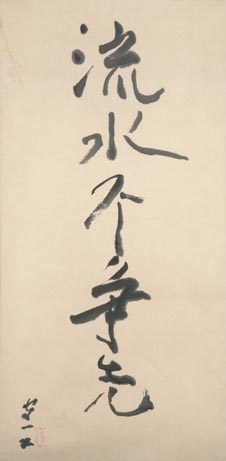 流水不争先